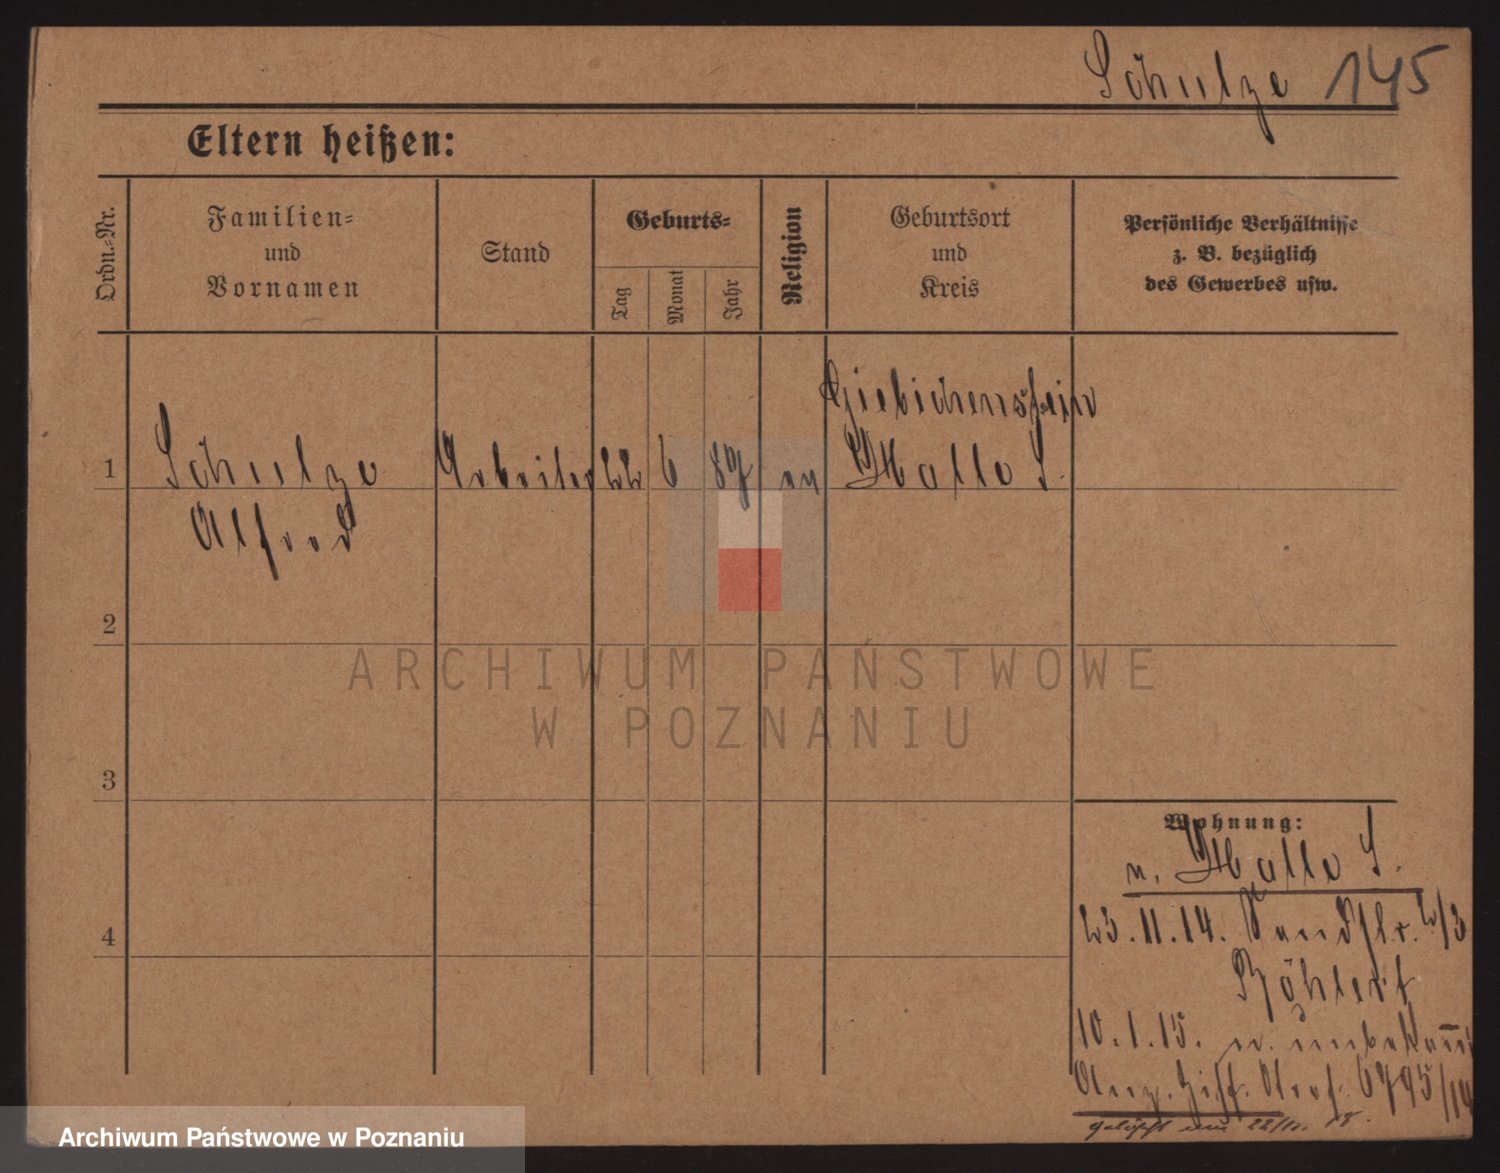 Schulze 145
Eltern heißen:
Ordn.=Nr.
Familien=
und
Vornamen
Stand
Geburts=
Tag
Monat
Jahr
Religion
Geburtsort
und
Kreis
Persönliche Verhältnisse
z. B. bezüglich
des Gewerbes usw.
Giebichenstein
1 Schulze Arbeiter 22 6 87 ev Halle S.
Alfred
2
3
4
ARCHIWUM PAŃSTWOWE
W POZNANIU
Wohnung:
n. Halle S.
23.11.14. 2/3
Böhlert
10.1.15. n. unbekannt
Anz. 6795/14
gelöscht 22/11. 18.
Archiwum Państwowe w Poznaniu